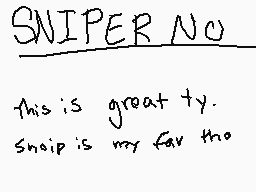 SNIPER NO
this is great ty.
Snoip is my fav tho